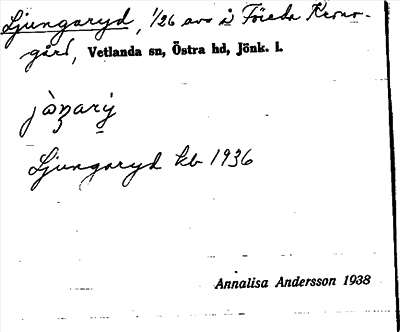 Ljungaryd, 1/26 avs å Föreda Krono-
gård, Vetlanda sn, Östra hd, Jönk. l.
Ljungaryd kb 1936
Annalisa Andersson 1938